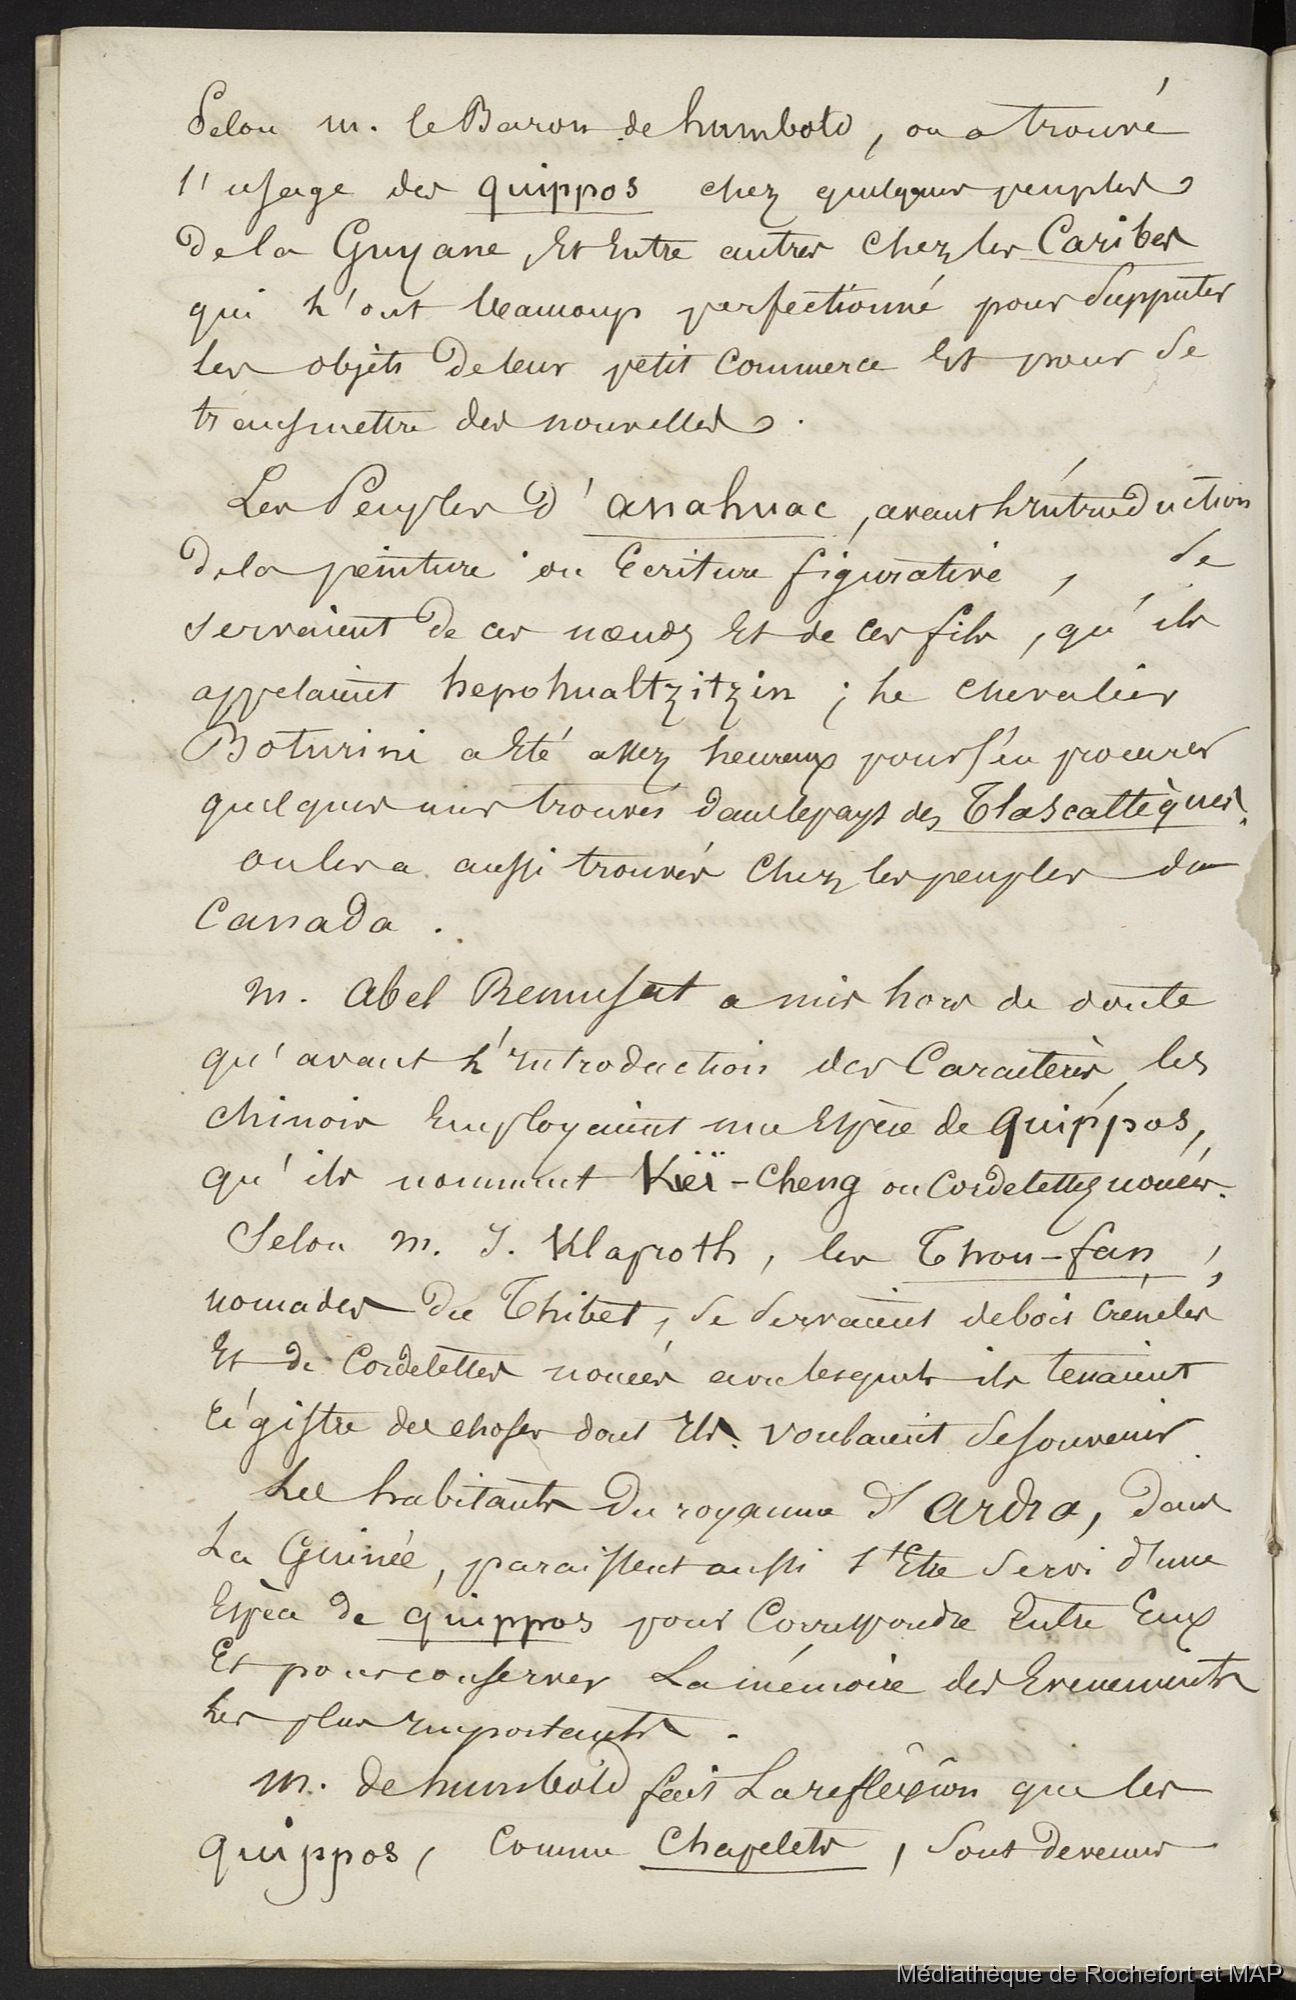 Selon m. le Baron de humbold, on a trouvé
l'usage des quippos chez quelques peuples
de la Guyane, Et Entre autres chez les Caribes
qui l'ont beaucoup perfectionné pour Supputer
les objets de leur petit Commerce Et pour se
transmettre des nouvelles.
Les Peuples d'anahuac, avant l'introduction
de la peinture ou Ecriture figurative, se
servaient de ces nœuds Et de ces fils, qu'ils
appelaient hepohualtzitzin ; Le chevalier
Boturini a Eté assez heureux pour s'en procurer
quelques uns trouvés dans le pays des Tlascaltèques.
on les a aussi trouvés chez les peuples du
Canada.
m. abel Remusat a mis hors de doute
qu'avant L'Introduction des Caractères, les
chinois Employaient une Espèce de quippos,
qu'ils nomment Kieï-cheng ou Cordelettes nouées.
Selon m. J. Klaproth, les Thou-fan,
nomades du Thibet, se servaient de bois crénelés
Et de Cordelettes nouées avec lesquels ils tenaient
régistre des choses dont Ils voulaient se souvenir
Les habitants du royaume d'ardra, dans
La Guinée, paraissent aussi s'Etre servi d'une
Espèce de quippos pour Correspondre Entre Eux
Et pour conserver La mémoire des Evenements
Les plus Importants.
m. de humbold fait La réflexion que les
quippos, comme chapelets, sont devenus
Médiathèque de Rochefort et MAP